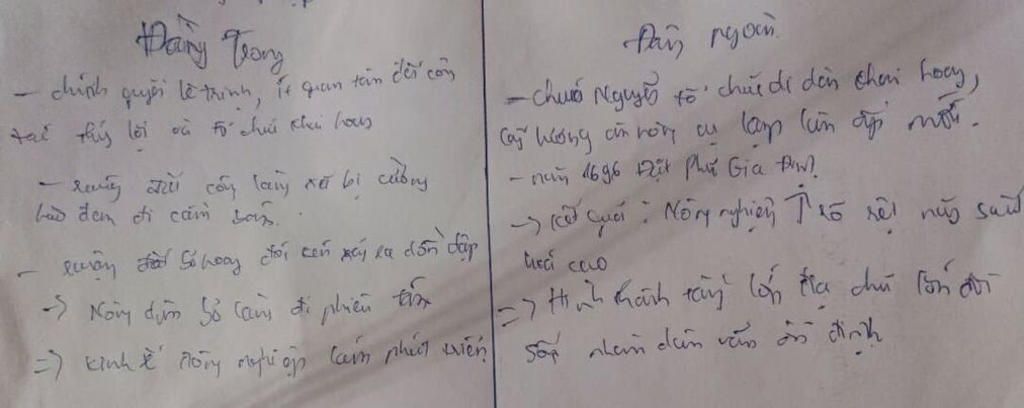 Đàng Trong
- chính quyền Lê Trịnh, ít quan tâm đến côn
tác thủy lợi và tổ chức khai hoang
- ruộng đất công làng xã bị cường
hào đem đi cầm bán.
- ruộng đất bỏ hoang đói kém xảy ra dồn dập
-> Nông dân bỏ làng đi phiêu tán
=> kinh tế nông nghiệp phát triển
Đàng ngoài
- chúa Nguyễn tổ chức di dân khai hoang,
cấp lương ăn nông cụ lập làn ấp mới.
- năm 1696 Đặt Phủ Gia Định
-> kết quả: Nông nghiệp ↑ rõ rệt năng suất
lúa cao
=> Hình thành tầng lớp địa chủ lớn đời
sống nhân dân vẫn ổn định